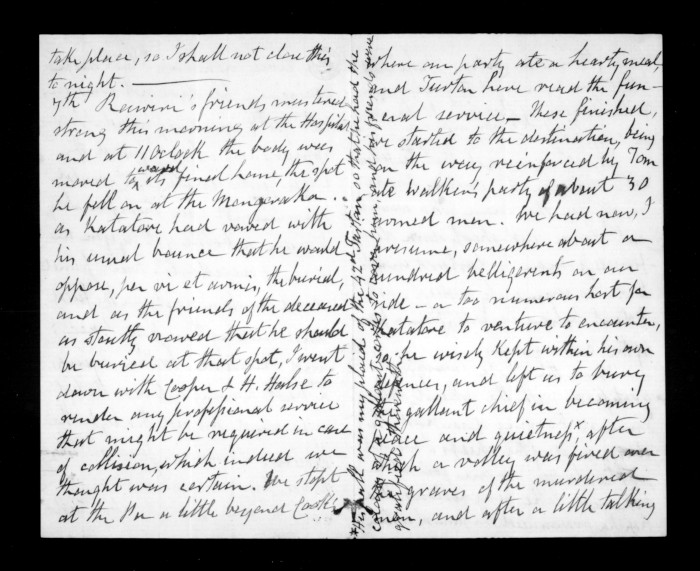 take place, so I shall not close this
to night.
7th Rawiri's friends mustered
strong this morning at the Hospital
and at 11 O'clock the body was
moved towards its final home, the spot
he fell on at the Mangaraka.
as Katatore had vowed with
his usual bounce that he would
oppose, per vi et armis, the burial,
and as the friends of the deceased
as stoutly vowed that he should
be buried at that spot, I went
down with Cooper & H. Halse to
render any professional service
that might be required in case
of collision, which indeed we
thought was certain. We stopt
at the Pa a little beyond
where our party ate a hearty meal,
and Turton have read the fun-
eral service - These finished,
we started to the destination, being
on the way reinforced by Tom
ate Walker's party of about 30
armed men. We had now, I
presume, somewhere about a
hundred belligerents on our
side - a too numerous host for
Katatore to venture to encounter,
so he wisely kept within his own
defences, and left us to bury
the gallant chief in becoming
peace and quietness x, after
which a valley was fired over
the graves of the murdered
men, and after a little talking
x my plaid of the 42d Tartan, so that he had the
colours of a gallant to cover him, and his friends were
gratified therewith